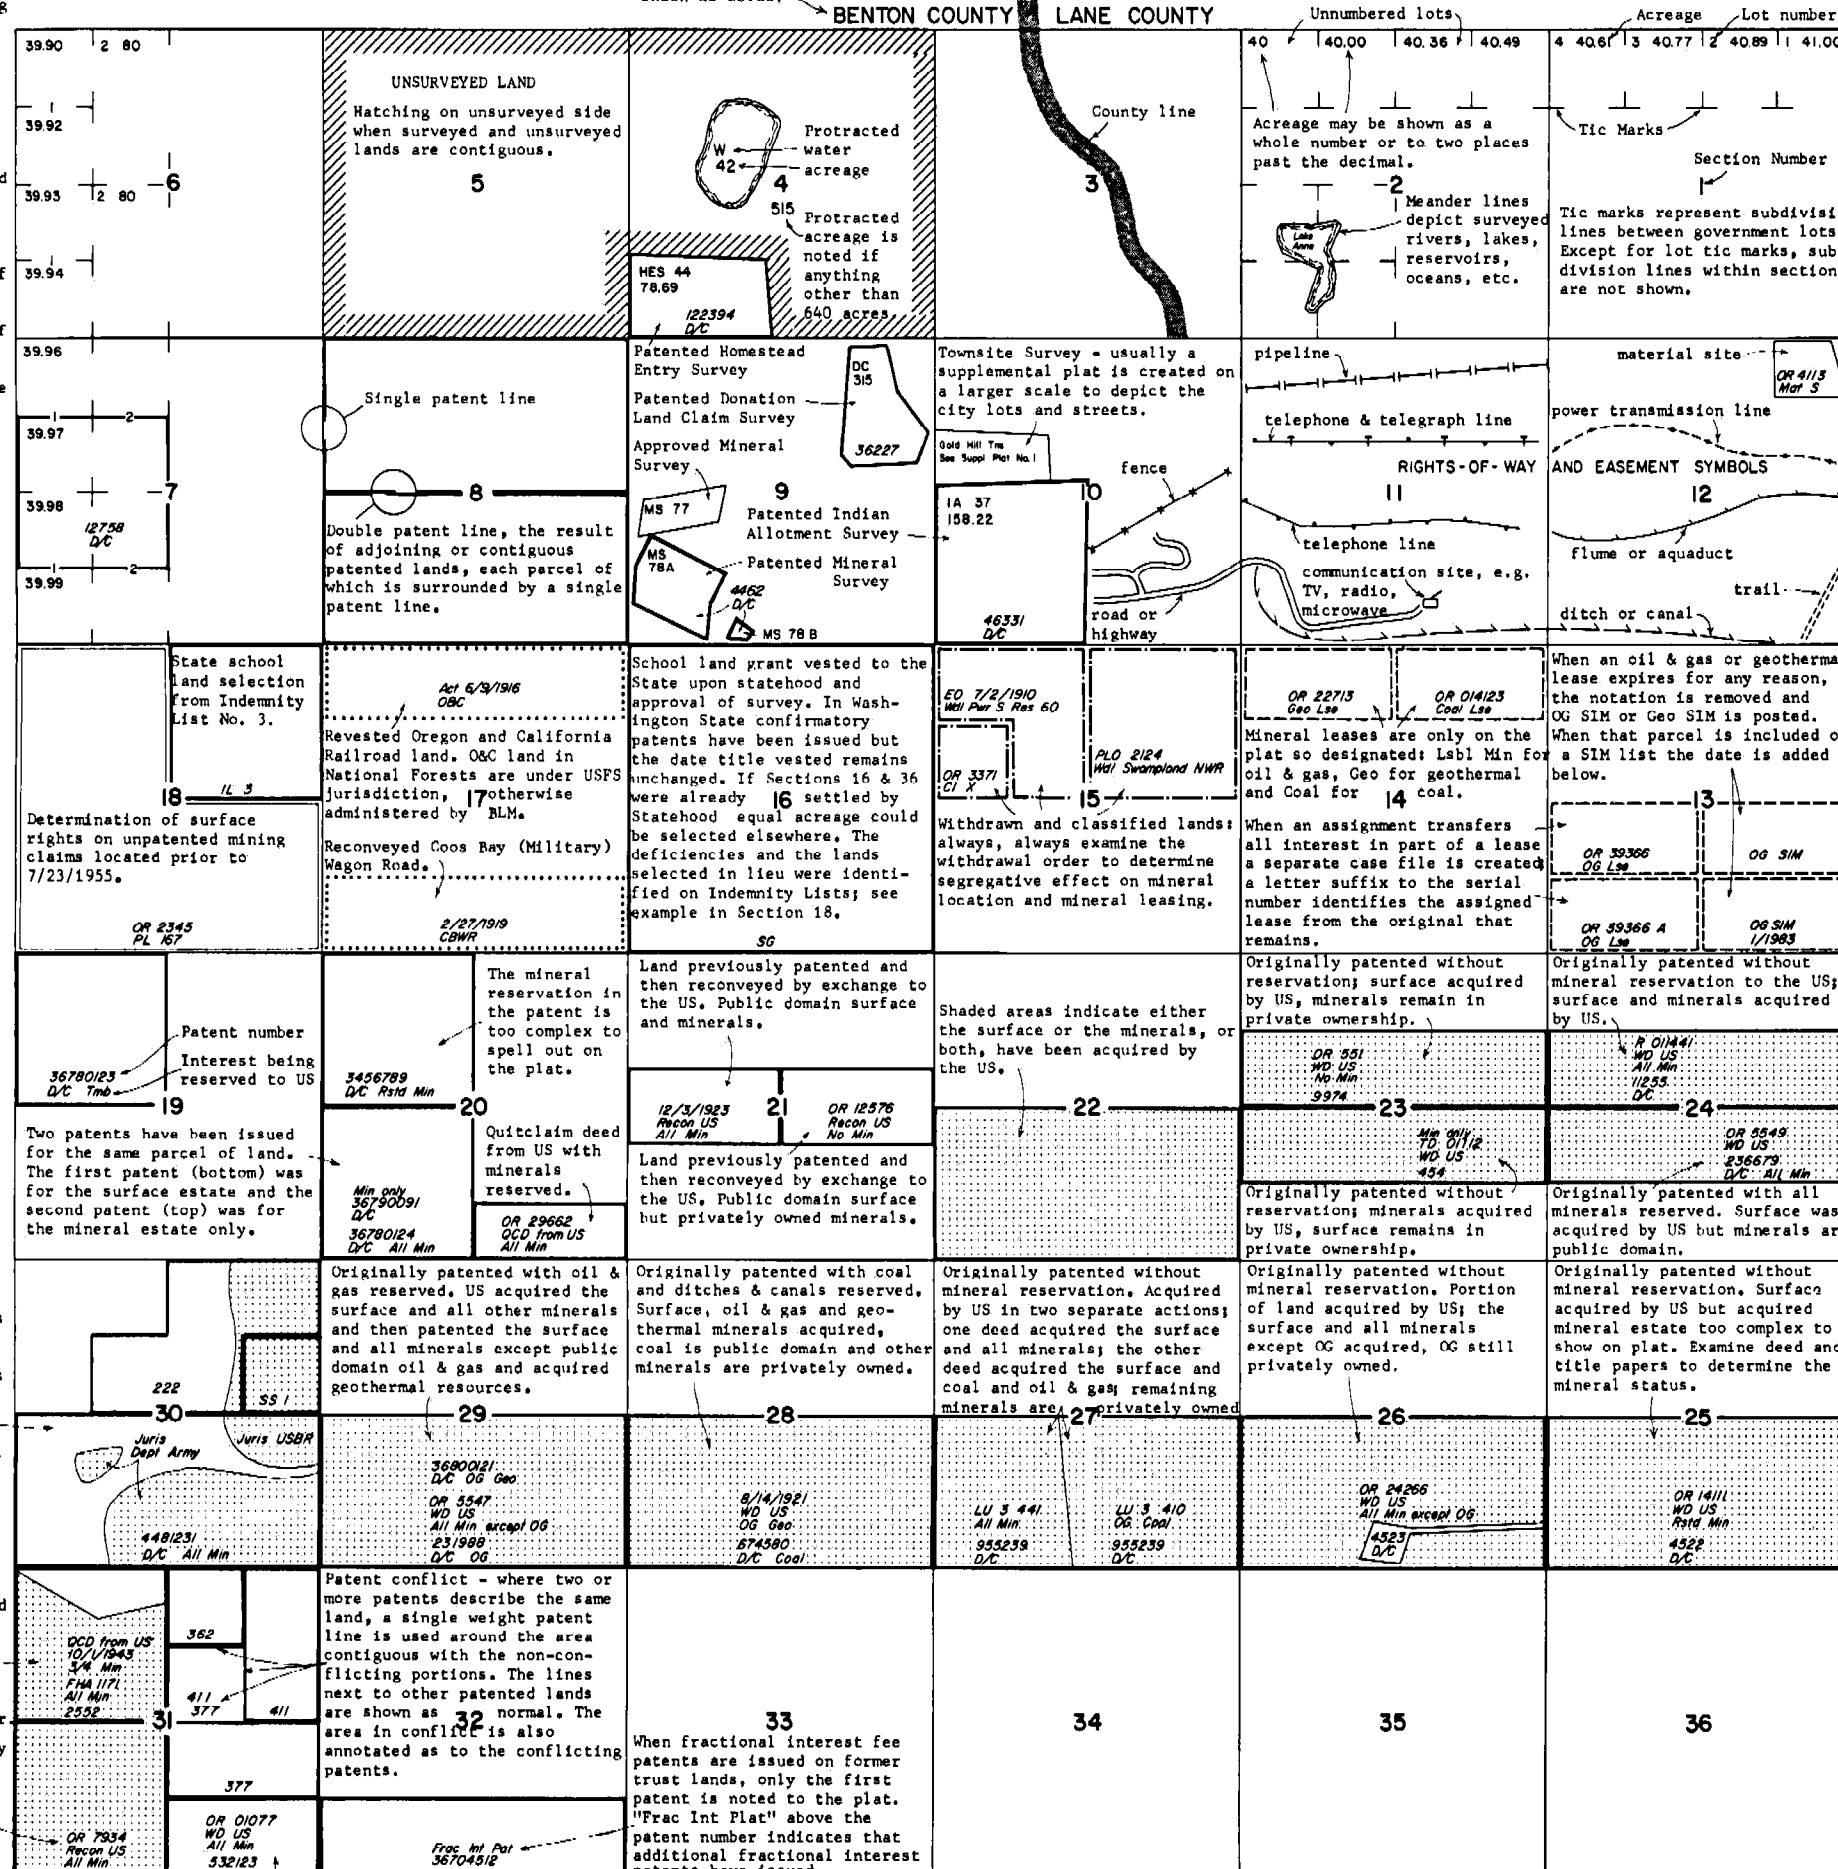 BENTON COUNTY LANE COUNTY
Unnumbered lots
Acreage Lot number
39.90 2 80
1
39.92
39.93 2 80
39.94
6
UNSURVEYED LAND
Hatching on unsurveyed side
when surveyed and unsurveyed
lands are contiguous.
5
W
42
Protracted
water
acreage
4
515
Protracted
acreage is
noted if
anything
other than
640 acres.
HES 44
78.69
122394
D/C
County line
3
40 40.00 40.36 40.49
Acreage may be shown as a
whole number or to two places
past the decimal.
2
Meander lines
depict surveyed
rivers, lakes,
reservoirs,
oceans, etc.
Lake
Anne
4 40.61 3 40.77 2 40.89 1 41.00
Tic Marks
Section Number
Tic marks represent subdivisi
lines between government lots
Except for lot tic marks, sub
division lines within section
are not shown.
39.96
1 2
39.97
39.98
12758
D/C
1 2
39.99
7
Single patent line
8
Double patent line, the result
of adjoining or contiguous
patented lands, each parcel of
which is surrounded by a single
patent line.
Patented Homestead
Entry Survey
Patented Donation
Land Claim Survey
Approved Mineral
Survey
DC
315
36227
MS 77
9
Patented Indian
Allotment Survey
MS
78A
Patented Mineral
Survey
4462
D/C
MS 78 B
Townsite Survey - usually a
supplemental plat is created on
a larger scale to depict the
city lots and streets.
Gold Hill Tns
See Suppl Plat No. 1
fence
10
IA 37
158.22
46331
D/C
road or
highway
pipeline
telephone & telegraph line
RIGHTS-OF-WAY AND EASEMENT SYMBOLS
11
telephone line
communication site, e.g.
TV, radio,
microwave
material site
OR 4113
Mat S
power transmission line
12
flume or aquaduct
trail
ditch or canal
State school
land selection
from Indemnity
List No. 3.
18
IL 3
Determination of surface
rights on unpatented mining
claims located prior to
7/23/1955.
OR 2345
PL 167
Act 6/9/1916
O&C
Revested Oregon and California
Railroad land. O&C land in
National Forests are under USFS
jurisdiction, 17 otherwise
administered by BLM.
Reconveyed Coos Bay (Military)
Wagon Road.
2/27/1919
CBWR
School land grant vested to the
State upon statehood and
approval of survey. In Wash-
ington State confirmatory
patents have been issued but
the date title vested remains
unchanged. If Sections 16 & 36
were already 16 settled by
Statehood equal acreage could
be selected elsewhere. The
deficiencies and the lands
selected in lieu were identi-
fied on Indemnity Lists; see
example in Section 18.
SG
EO 7/2/1910
Wdl Pwr S Res 60
OR 3371
Cl X
PLO 2124
Wdl Swampland NWR
15
Withdrawn and classified lands:
always, always examine the
withdrawal order to determine
segregative effect on mineral
location and mineral leasing.
OR 22713
Geo Lse
OR 014123
Coal Lse
Mineral leases are only on the
plat so designated: Lsbl Min for
oil & gas, Geo for geothermal
and Coal for 14 coal.
When an assignment transfers
all interest in part of a lease
a separate case file is created;
a letter suffix to the serial
number identifies the assigned
lease from the original that
remains.
When an oil & gas or geotherma
lease expires for any reason,
the notation is removed and
OG SIM or Geo SIM is posted.
When that parcel is included o
a SIM list the date is added
below.
13
OR 39366
OG Lse
OG SIM
OR 39366 A
OG Lse
OG SIM
1/1983
Patent number
Interest being
reserved to US
36780123
D/C Tmb
19
Two patents have been issued
for the same parcel of land.
The first patent (bottom) was
for the surface estate and the
second patent (top) was for
the mineral estate only.
The mineral
reservation in
the patent is
too complex to
spell out on
the plat.
3456789
D/C Rstd Min
20
Min only
36790091
D/C
36780124
D/C All Min
Quitclaim deed
from US with
minerals
reserved.
OR 29662
QCD from US
All Min
Land previously patented and
then reconveyed by exchange to
the US. Public domain surface
and minerals.
12/3/1923
Recon US
All Min
21
OR 12576
Recon US
No Min
Land previously patented and
then reconveyed by exchange to
the US. Public domain surface
but privately owned minerals.
Shaded areas indicate either
the surface or the minerals, or
both, have been acquired by
the US.
22
Originally patented without
reservation; surface acquired
by US, minerals remain in
private ownership.
OR 551
WD US
No Min
9974
23
Min only
TD 01112
WD US
454
Originally patented without
reservation; minerals acquired
by US, surface remains in
private ownership.
Originally patented without
mineral reservation to the US;
surface and minerals acquired
by US.
R 011441
WD US
All Min
11255
D/C
24
OR 5549
WD US
236679
D/C All Min
Originally patented with all
minerals reserved. Surface was
acquired by US but minerals ar
public domain.
222
SS 1
30
Juris
Dept Army
Juris USBR
4481231
D/C All Min
Originally patented with oil &
gas reserved. US acquired the
surface and all other minerals
and then patented the surface
and all minerals except public
domain oil & gas and acquired
geothermal resources.
29
36800121
D/C OG Geo
OR 5547
WD US
All Min except OG
231988
D/C OG
Originally patented with coal
and ditches & canals reserved.
Surface, oil & gas and geo-
thermal minerals acquired,
coal is public domain and other
minerals are privately owned.
28
8/14/1921
WD US
OG Geo
674580
D/C Coal
Originally patented without
mineral reservation. Acquired
by US in two separate actions;
one deed acquired the surface
and all minerals; the other
deed acquired the surface and
coal and oil & gas; remaining
minerals are privately owned
27
LU 3 441
All Min
955239
D/C
LU 3 410
OG Coal
955239
D/C
Originally patented without
mineral reservation. Portion
of land acquired by US; the
surface and all minerals
except OG acquired, OG still
privately owned.
26
OR 24266
WD US
All Min except OG
4523
D/C
Originally patented without
mineral reservation. Surface
acquired by US but acquired
mineral estate too complex to
show on plat. Examine deed and
title papers to determine the
mineral status.
25
OR 14111
WD US
Rstd Min
4522
D/C
QCD from US
10/1/1943
3/4 Min
FHA 1171
All Min
2552
31
OR 7934
Recon US
All Min
362
411
377
411
377
OR 01077
WD US
All Min
532123
Patent conflict - where two or
more patents describe the same
land, a single weight patent
line is used around the area
contiguous with the non-con-
flicting portions. The lines
next to other patented lands
are shown as 32 normal. The
area in conflict is also
annotated as to the conflicting
patents.
Frac Int Pat
36704512
33
When fractional interest fee
patents are issued on former
trust lands, only the first
patent is noted to the plat.
"Frac Int Plat" above the
patent number indicates that
additional fractional interest
34
35
36